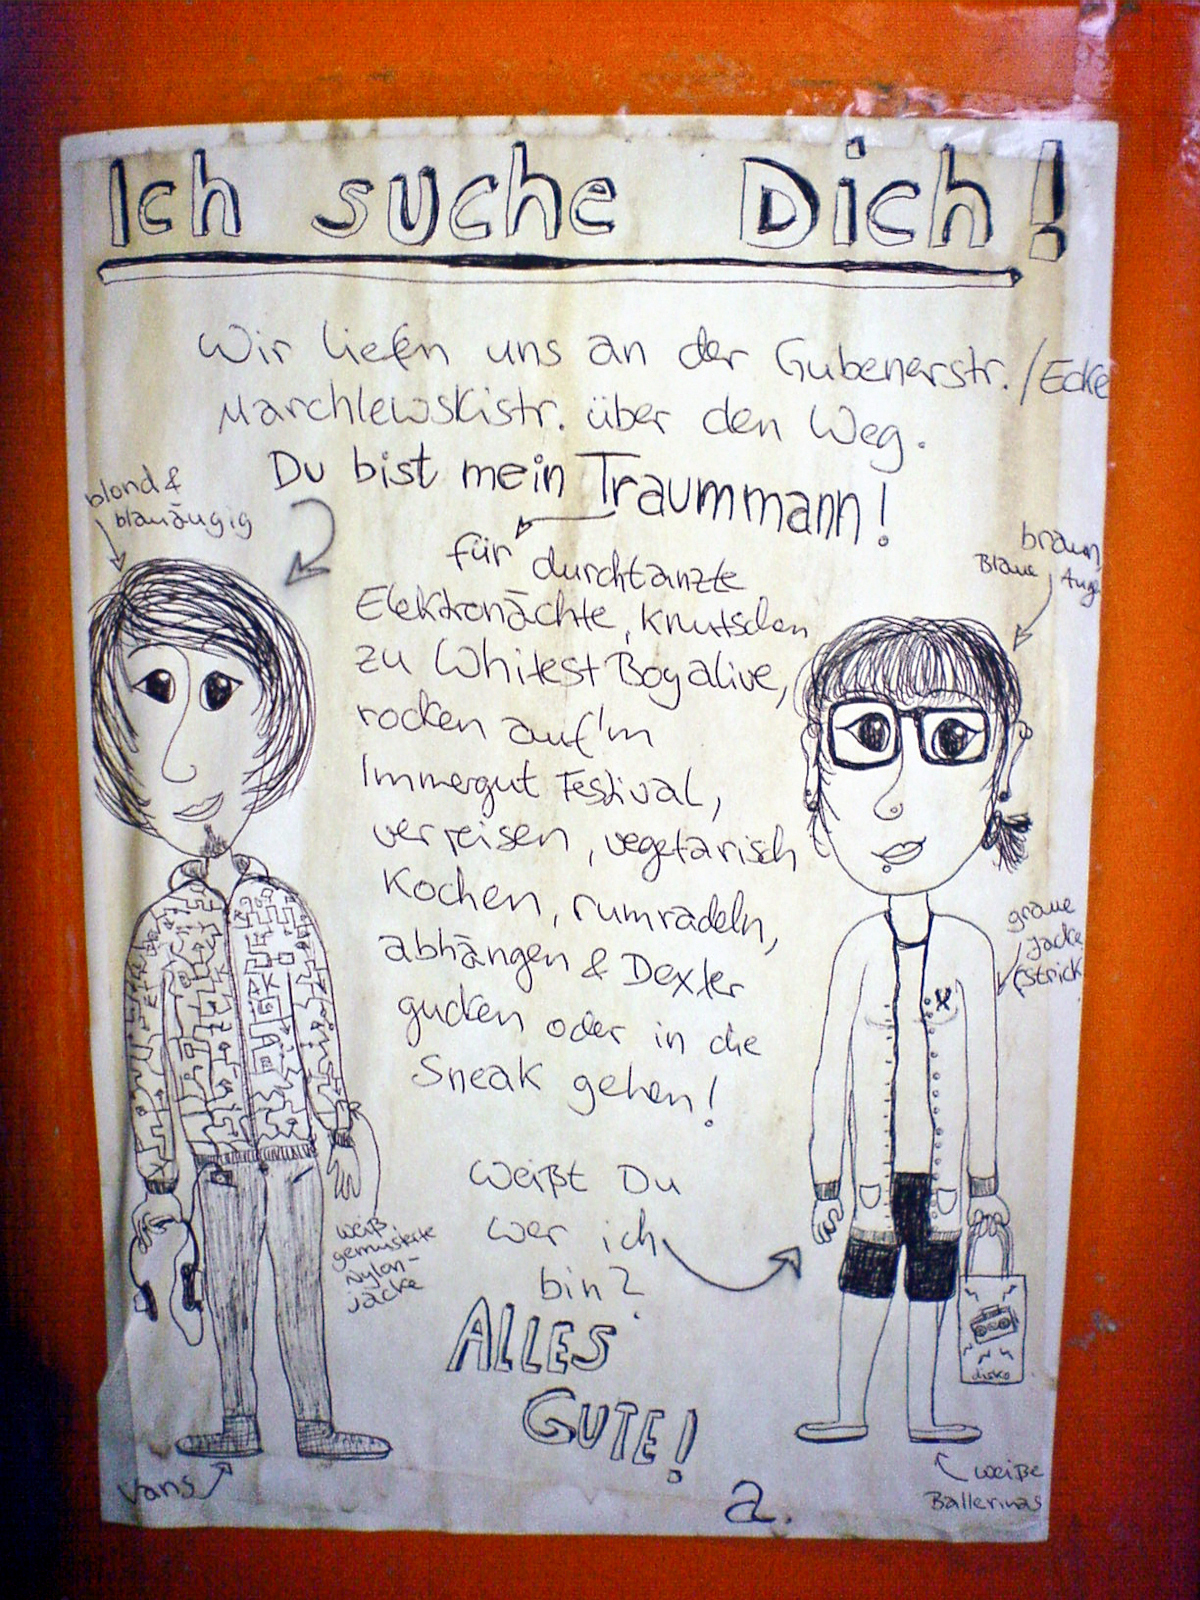 Ich suche Dich!
Wir liefen uns an der Gubenerstr./Ecke
Marchlewskistr. über den Weg.
Du bist mein Traummann!
blond &
blauäugig
für durchtanzte
Elektronächte, knutschen
zu Whitest Boy alive,
rocken auf'm
Immergut Festival,
verreisen, vegetarisch
Kochen, rumradeln,
abhängen & Dexter
gucken oder in die
Sneak gehen!
braun,
Blaue Auge
graue
Jacke
(Strick
weiß
gemusterte
Nylon-
jacke
Weißt Du
wer ich
bin?
ALLES
GUTE!
a.
disko
Vans
weiße
Ballerinas